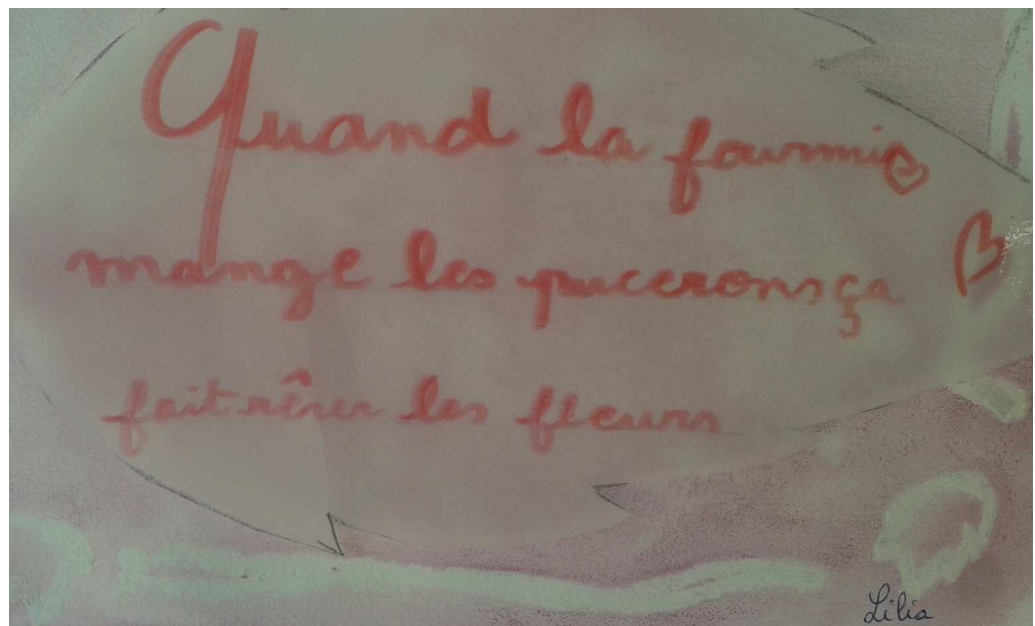 Quand la fourmi
mange les pucerons ça
fait rêver les fleurs
Lilia